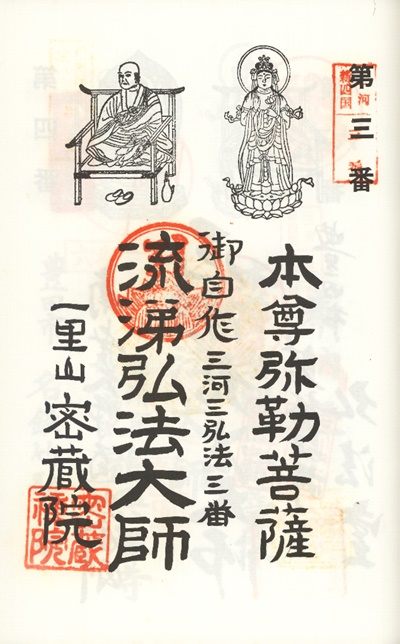 第三番
本尊弥勒菩薩
御自作 三河三弘法三番
流涕弘法大師
一里山 密蔵院
密蔵